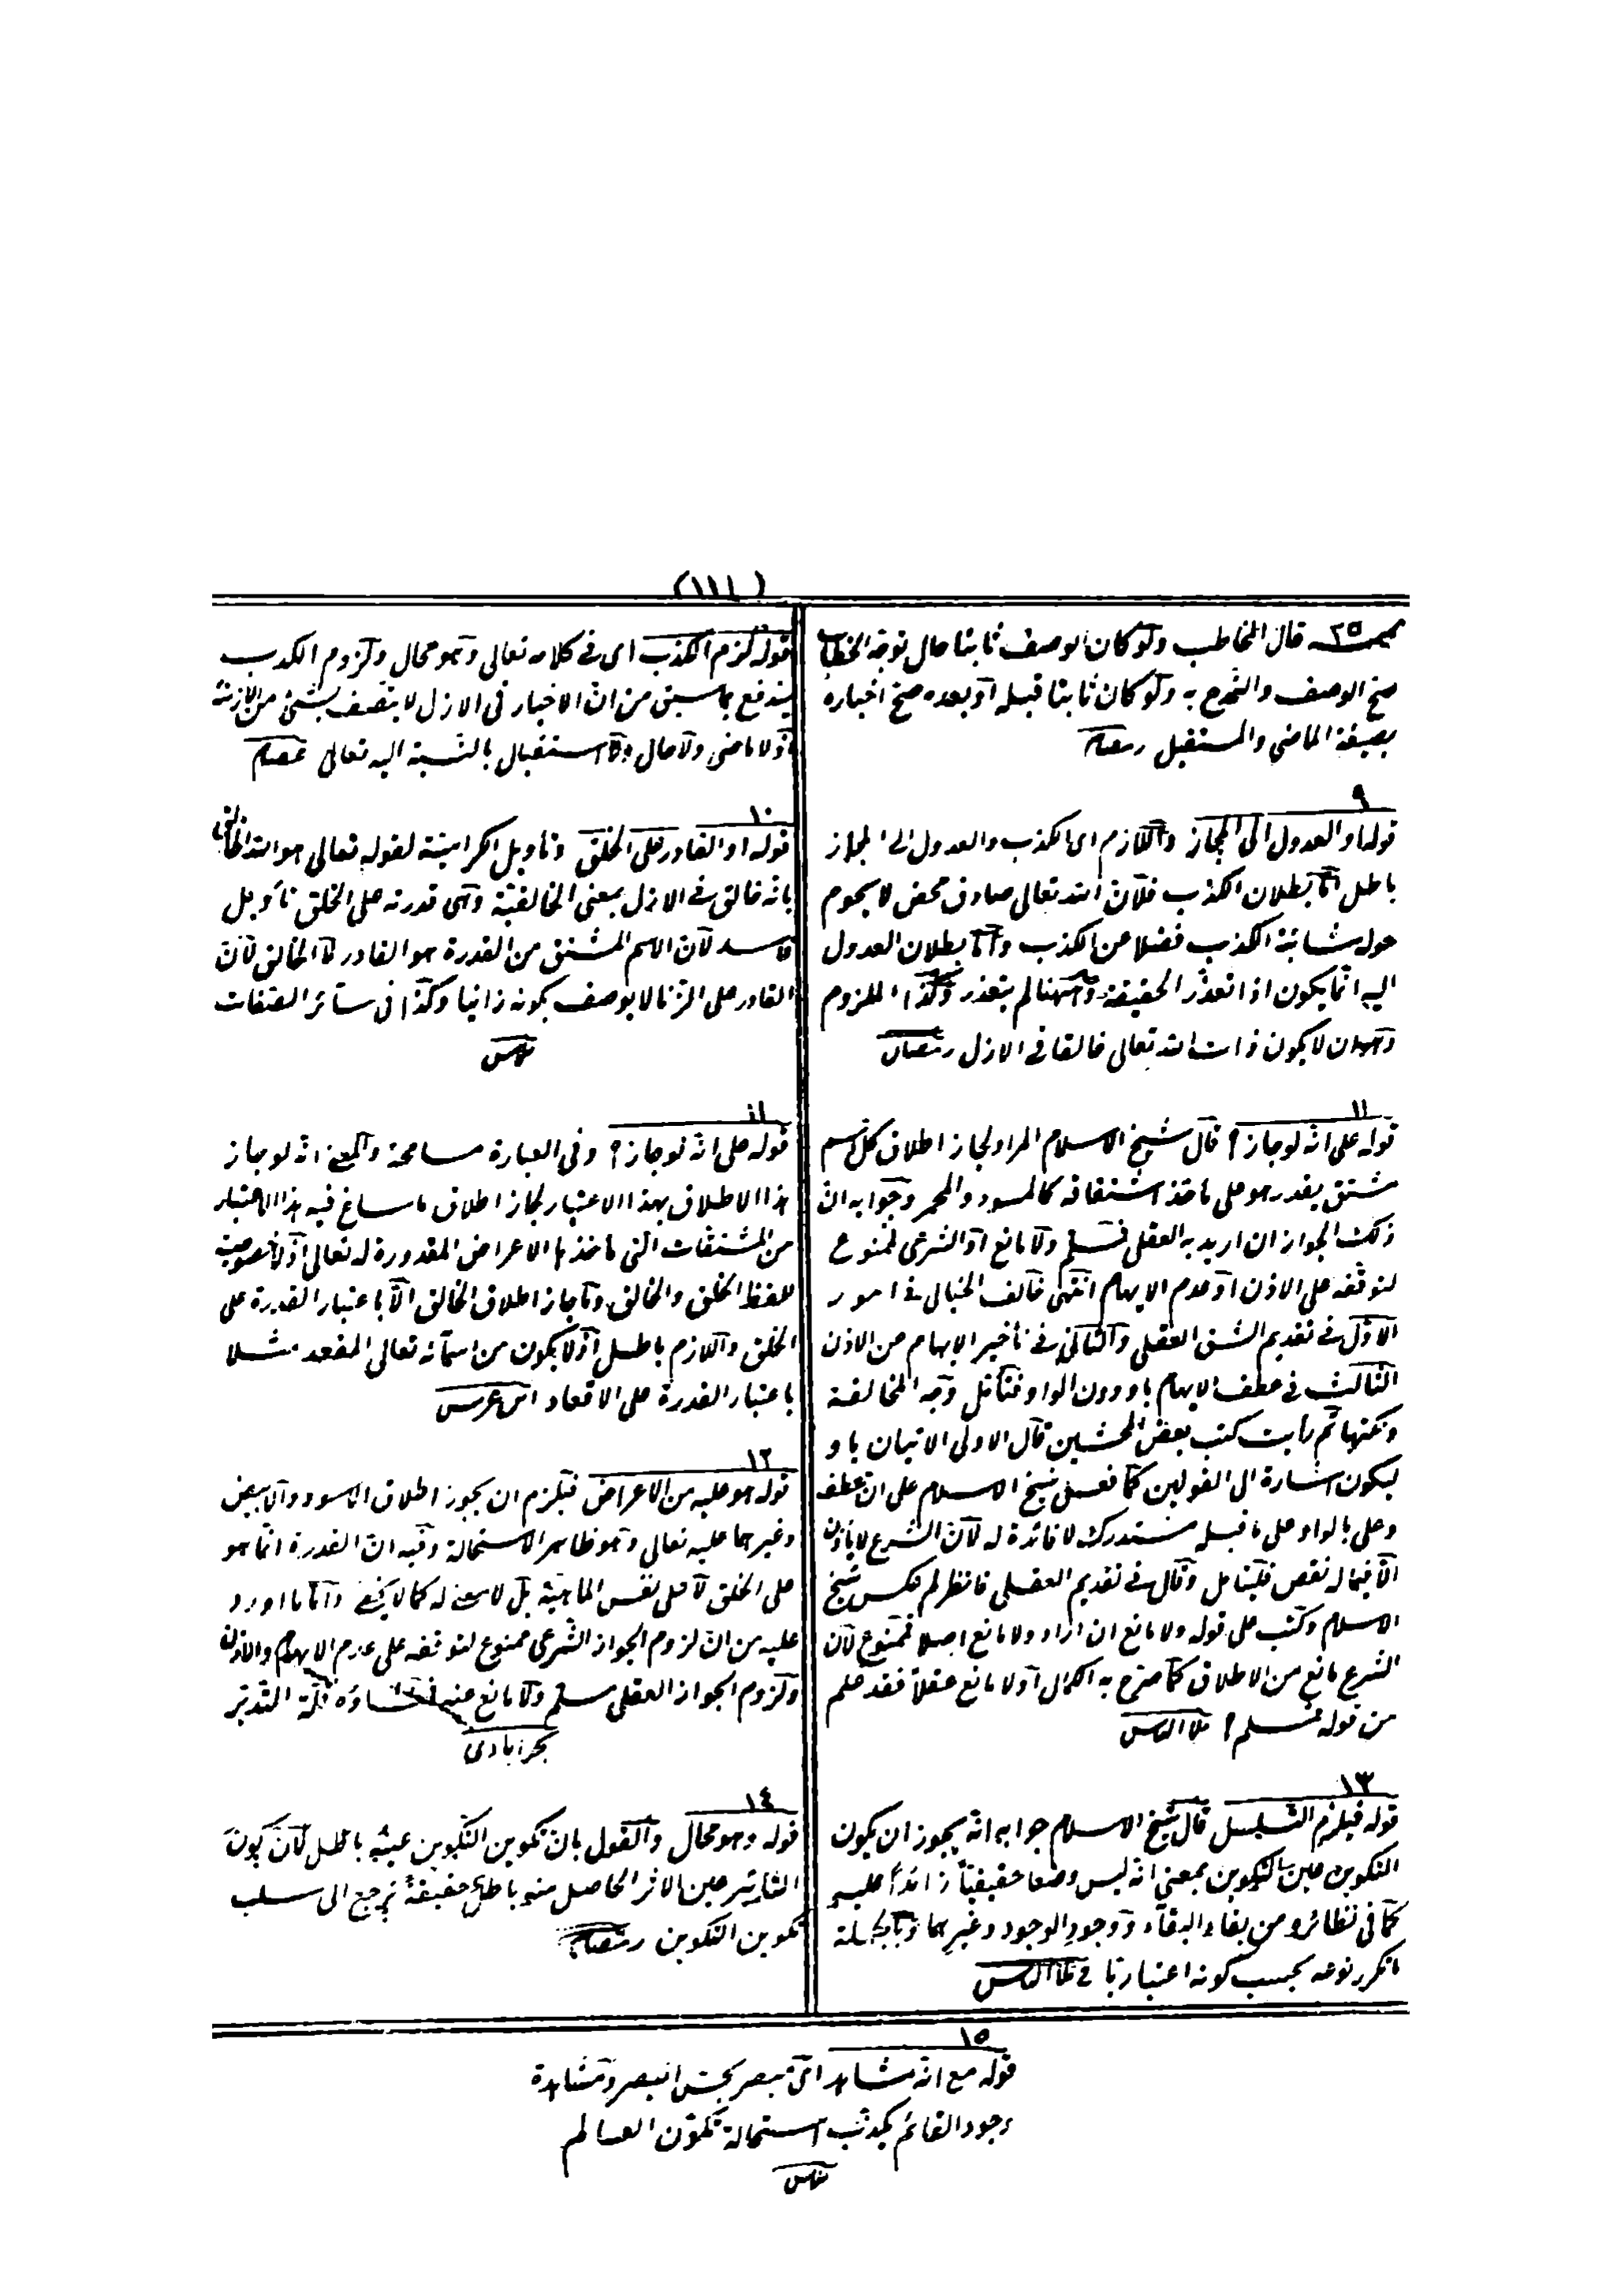 (١١١)
٢٥ قال المخاطب ولو كان الوصف ثابتا حال توجه الخطاب
صح الوصف والشرح به ولو كان ثابتا قبله او بعده صح اخباره
بصيغة الماضى والمستقبل رمضان
٩
قوله او العدول الى المجاز واللازم اى الكذب والعدول الى المجاز
باطل اما بطلان الكذب فلان الله تعالى صادق محض لا يحوم
حوله شائبة الكذب فضلا عن الكذب واما بطلان العدول
اليه انما يكون اذا تعذر الحقيقة وههنا لم يتعذر وكذا الملزوم
وهو ان لا يكون ذات الله تعالى خالقا فى الازل رمضان
١١
قوله على انه لو جاز ؟ قال شيخ الاسلام المراد لجاز اطلاق كل اسم
مشتق يقدر هو على ماخذ اشتقاقه كالمسود والمحمر وجوابه ان
ذلك الجواز ان اريد به العقلى فمسلم ولا مانع او الشرعى فممنوع
لتوقفه على الاذن او عدم الايهام انتهى خالف الخيالى فى امور
الاول فى تقديم الشق العقلى والثانى فى تأخير الايهام من الاذن
الثالث فى عطف الايهام باو دون الواو فتأمل وجه المخالفة
ونكتها ثم رأيت كتب بعض المحشين قال الاولى الاتيان باو
ليكون اشارة الى القولين كما فعل شيخ الاسلام على ان عطف
وعلى بالواو على ما قبله مستدرك لا فائدة له لان الشرع لا يأذن
الا فيما له نقص فليتأمل وقال فى تقديم العقلى فانظر لم عكس شيخ
الاسلام وكتب على قوله ولا مانع ان اراد ولا مانع اصلا فممنوع لان
الشرع مانع من الاطلاق كما صرح به الكمال او لا مانع عقلا فقد علم
من قوله مسلم ؟ ملا الياس
١٣
قوله فيلزم التسلسل قال شيخ الاسلام جوابه انه يجوز ان يكون
التكوين عين التكوين بمعنى انه ليس وصفا حقيقيا زائدا عليه
كما فى نظائره من بقاء البقاء ووجود الوجود وغيرها وبالجملة
ما تكرر نوعه بحسب كونه اعتباريا ملا الياس
قوله لزم الكذب اى فى كلامه تعالى وهو محال ولزوم الكذب
يندفع بما سبق من ان الاخبار فى الازل لا يتصف بشئ من الازمنة
اذ لا ماضى ولا حال ولا استقبال بالنسبة اليه تعالى عصام
١٠
قوله او القادر على الخلق وتأويل الكرامية لقوله تعالى هو الله الخالق
بانه خالق فى الازل بمعنى الخالقية وهى قدرته على الخلق تأويل
فاسد لان الاسم المشتق من القدرة هو القادر لا الخالق لان
القادر على الزنا لا يوصف بكونه زانيا وكذا فى سائر الصفات
١١
قوله على انه لو جاز ؟ وفى العبارة مسامحة والمعنى انه لو جاز
هذا الاطلاق بهذا الاعتبار لجاز اطلاق ما ساغ فيه هذا الاعتبار
من المشتقات التى ماخذها الاعراض المقدورة له تعالى اذ لا خصوصية
للفظ الخلق والخالق وما جاز اطلاق الخالق الا باعتبار القدرة على
الخلق واللازم باطل اذ لا يكون من اسمائه تعالى المقعد مثلا
باعتبار القدرة على الاقعاد ابن غرس
١٢
قوله هو عليه من الاعراض فيلزم ان يجوز اطلاق الاسود والابيض
وغيرهما عليه تعالى وهو ظاهر الاستحالة وفيه ان القدرة انما هو
على الخلق لا على نفس الماهية بل لا معنى له كما لا يخفى واما ما اورد
عليه من ان لزوم الجواز الشرعى ممنوع لتوقفه على عدم الايهام والاذن
ولزوم الجواز العقلى مسلم ولا مانع عنه فمنشاؤه قلة التدبر
بحرابادى
١٤
قوله وهو محال والقول بان تكوين التكوين عينه باطل لان كون
التأثير عين الاثر الحاصل منه باطل حقيقة يرجع الى سلب
تكوين التكوين رمضان
١٥
قوله مع انه مشاهد اى مبصر بحس البصر ومشاهدة
وجود القائم يكذب استحالة تكون العالم